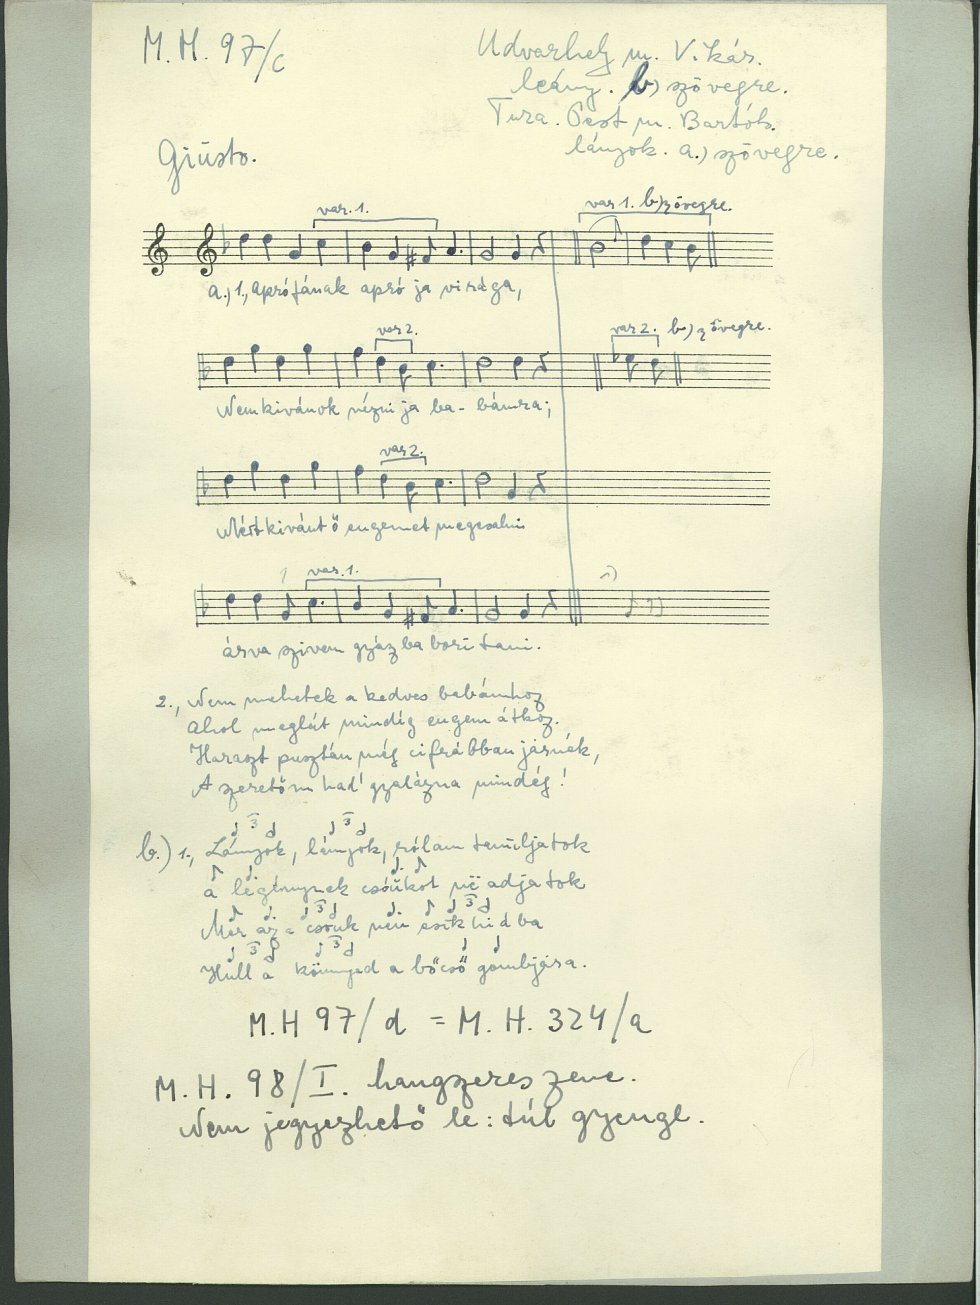 M.H. 97/c
Udvarhely m. V. kár.
leány. b) szövegre.
Tura. Pest m. Bartók.
lányok. a.) szövegre.
Giusto.
var. 1.
var 1. b) szövegre.
a.) 1., Aprófának apró ja virága,
var 2.
var 2. b) szövegre.
Nem kivánok nézni ja ba - bámra;
var 2.
Mért kivánt ő engemet megcsalni
var. 1.
árva szivem gyászba borí tani.
2., Nem mehetek a kedves babámhoz
Ahol meglát mindíg engem átkoz.
Haraszt pusztán még cifrábban járnék,
A szeretőm had' gyalázna mindég!
b.) 1., Lányok, lányok, rólam tanúljatok
a legénynek csókot ne adjatok
Mer az a csóuk nem esik hidba
Hull a könnyed a bőcső gombjára.
M.H 97/d = M.H. 324/a
M.H. 98/I. hangszeres zene.
Nem jegyezhető le: túl gyenge.